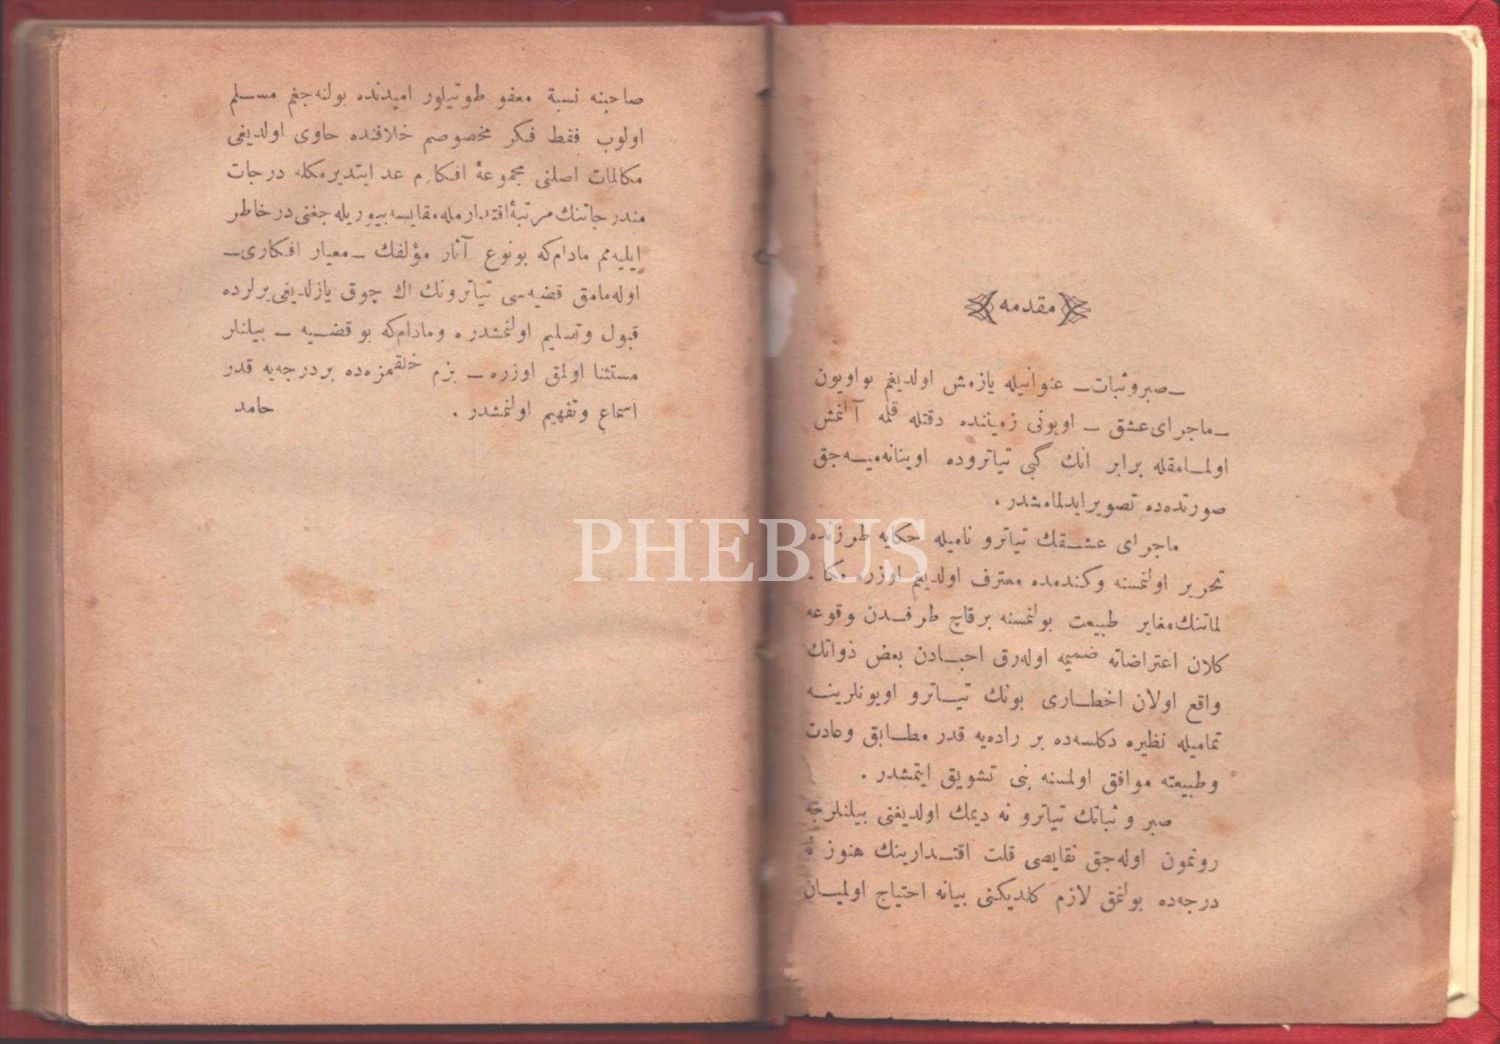 مقدمه
ـ صبر وثبات ـ عنوانیله یازمش اولدیغم بو اویون
ـ ماجرای عشق ـ اویونی زمیننده دقتله قلمه آلنمش
اولمامقله برابر انك گبی تیاتروده اوینانه‌میه‌جق
صورتده‌ده تصویر ایدلمامشدر .
ماجرای عشقك تیاترو نامیله حکایه طرزنده
تحریر اولنمسنه وکندمده معترف اولدیغم اوزره مکا ـ
لماتنك مغایر طبیعت بولنمسنه برقاچ طرفدن وقوعه
کلان اعتراضاته ضمیمه اوله‌رق احبادن بعض ذواتك
واقع اولان اخطاری بونك تیاترو اویونلرینه
تمامیله نظیره دکلسه‌ده بر راده‌یه قدر مطابق وعادت
وطبیعته موافق اولمسنه بنی تشویق ایتمشدر .
صبر وثباتك تیاترو نه دیمك اولدیغنی بیلنلرجه
رونمون اوله‌جق نقایصی قلت اقتدارینك هنوز نه
درجه‌ده بولنمق لازم کلدیکنی بیانه احتیاج اولمیان
صاحبنه نسبة معفو طوتیلور امیدنده بولنه‌جغم مسلم
اولوب فقط فکر مخصوصم خلافنده حاوی اولدیغی
مکالمات اصلنی مجموعهٔ افکارم عد ایتدیرمکله درجات
مندرجاتنك مرتبهٔ اقتدارمله مقایسه بیوریله‌جغنی درخاطر
ایلیه‌مم مادام‌که بونوع آثار مؤلفك ـ معیار افکاری ـ
اوله‌مامق قضیه‌سی تیاترونك اك چوق یازلدیغی یرلرده
قبول وتسلیم اولنمشدر ومادام‌که بو قضیه ـ بیلنلر
مستثنا اولمق اوزره ـ بزم خلقمزه‌ده بر درجه‌یه قدر
اسماع وتفهیم اولنمشدر . حامد
PHEBUS